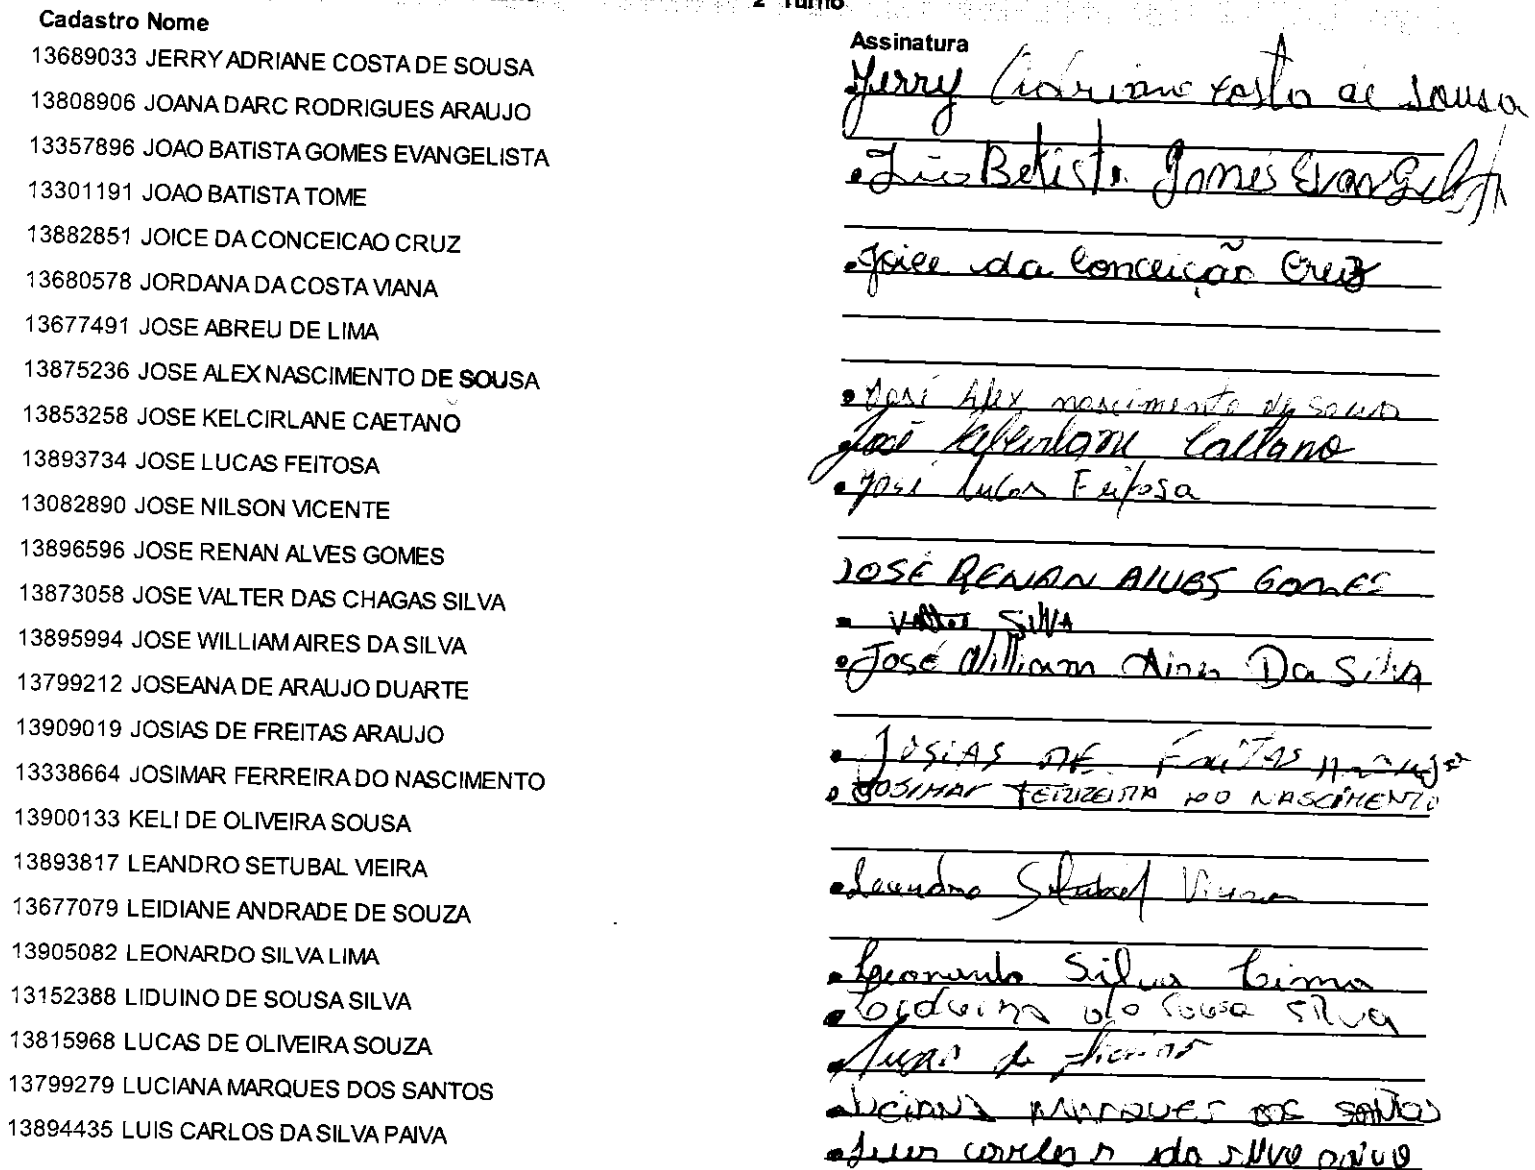 2º Turno
Cadastro Nome Assinatura
13689033 JERRY ADRIANE COSTA DE SOUSA Jerry Adriane Costa de Sousa
13808906 JOANA DARC RODRIGUES ARAUJO
13357896 JOAO BATISTA GOMES EVANGELISTA João Batista Gomes Evangelista
13301191 JOAO BATISTA TOME
13882851 JOICE DA CONCEICAO CRUZ Joice da Conceição Cruz
13680578 JORDANA DA COSTA VIANA
13677491 JOSE ABREU DE LIMA
13875236 JOSE ALEX NASCIMENTO DE SOUSA José Alex nascimento de Sousa
13853258 JOSE KELCIRLANE CAETANO José Kelcirlane Caetano
13893734 JOSE LUCAS FEITOSA José Lucas Feitosa
13082890 JOSE NILSON VICENTE
13896596 JOSE RENAN ALVES GOMES JOSÉ RENAN ALVES GOMES
13873058 JOSE VALTER DAS CHAGAS SILVA Valter Silva
13895994 JOSE WILLIAM AIRES DA SILVA José William Aires Da Silva
13799212 JOSEANA DE ARAUJO DUARTE
13909019 JOSIAS DE FREITAS ARAUJO JOSIAS DE FREITAS Araujo
13338664 JOSIMAR FERREIRA DO NASCIMENTO JOSIMAR FERREIRA DO NASCIMENTO
13900133 KELI DE OLIVEIRA SOUSA
13893817 LEANDRO SETUBAL VIEIRA Leandro Setubal Vieira
13677079 LEIDIANE ANDRADE DE SOUZA
13905082 LEONARDO SILVA LIMA Leonardo Silva Lima
13152388 LIDUINO DE SOUSA SILVA Liduino de Sousa Silva
13815968 LUCAS DE OLIVEIRA SOUZA Lucas de
13799279 LUCIANA MARQUES DOS SANTOS Luciana MARQUES DOS SANTOS
13894435 LUIS CARLOS DA SILVA PAIVA Luis Carlos da Silva Paiva